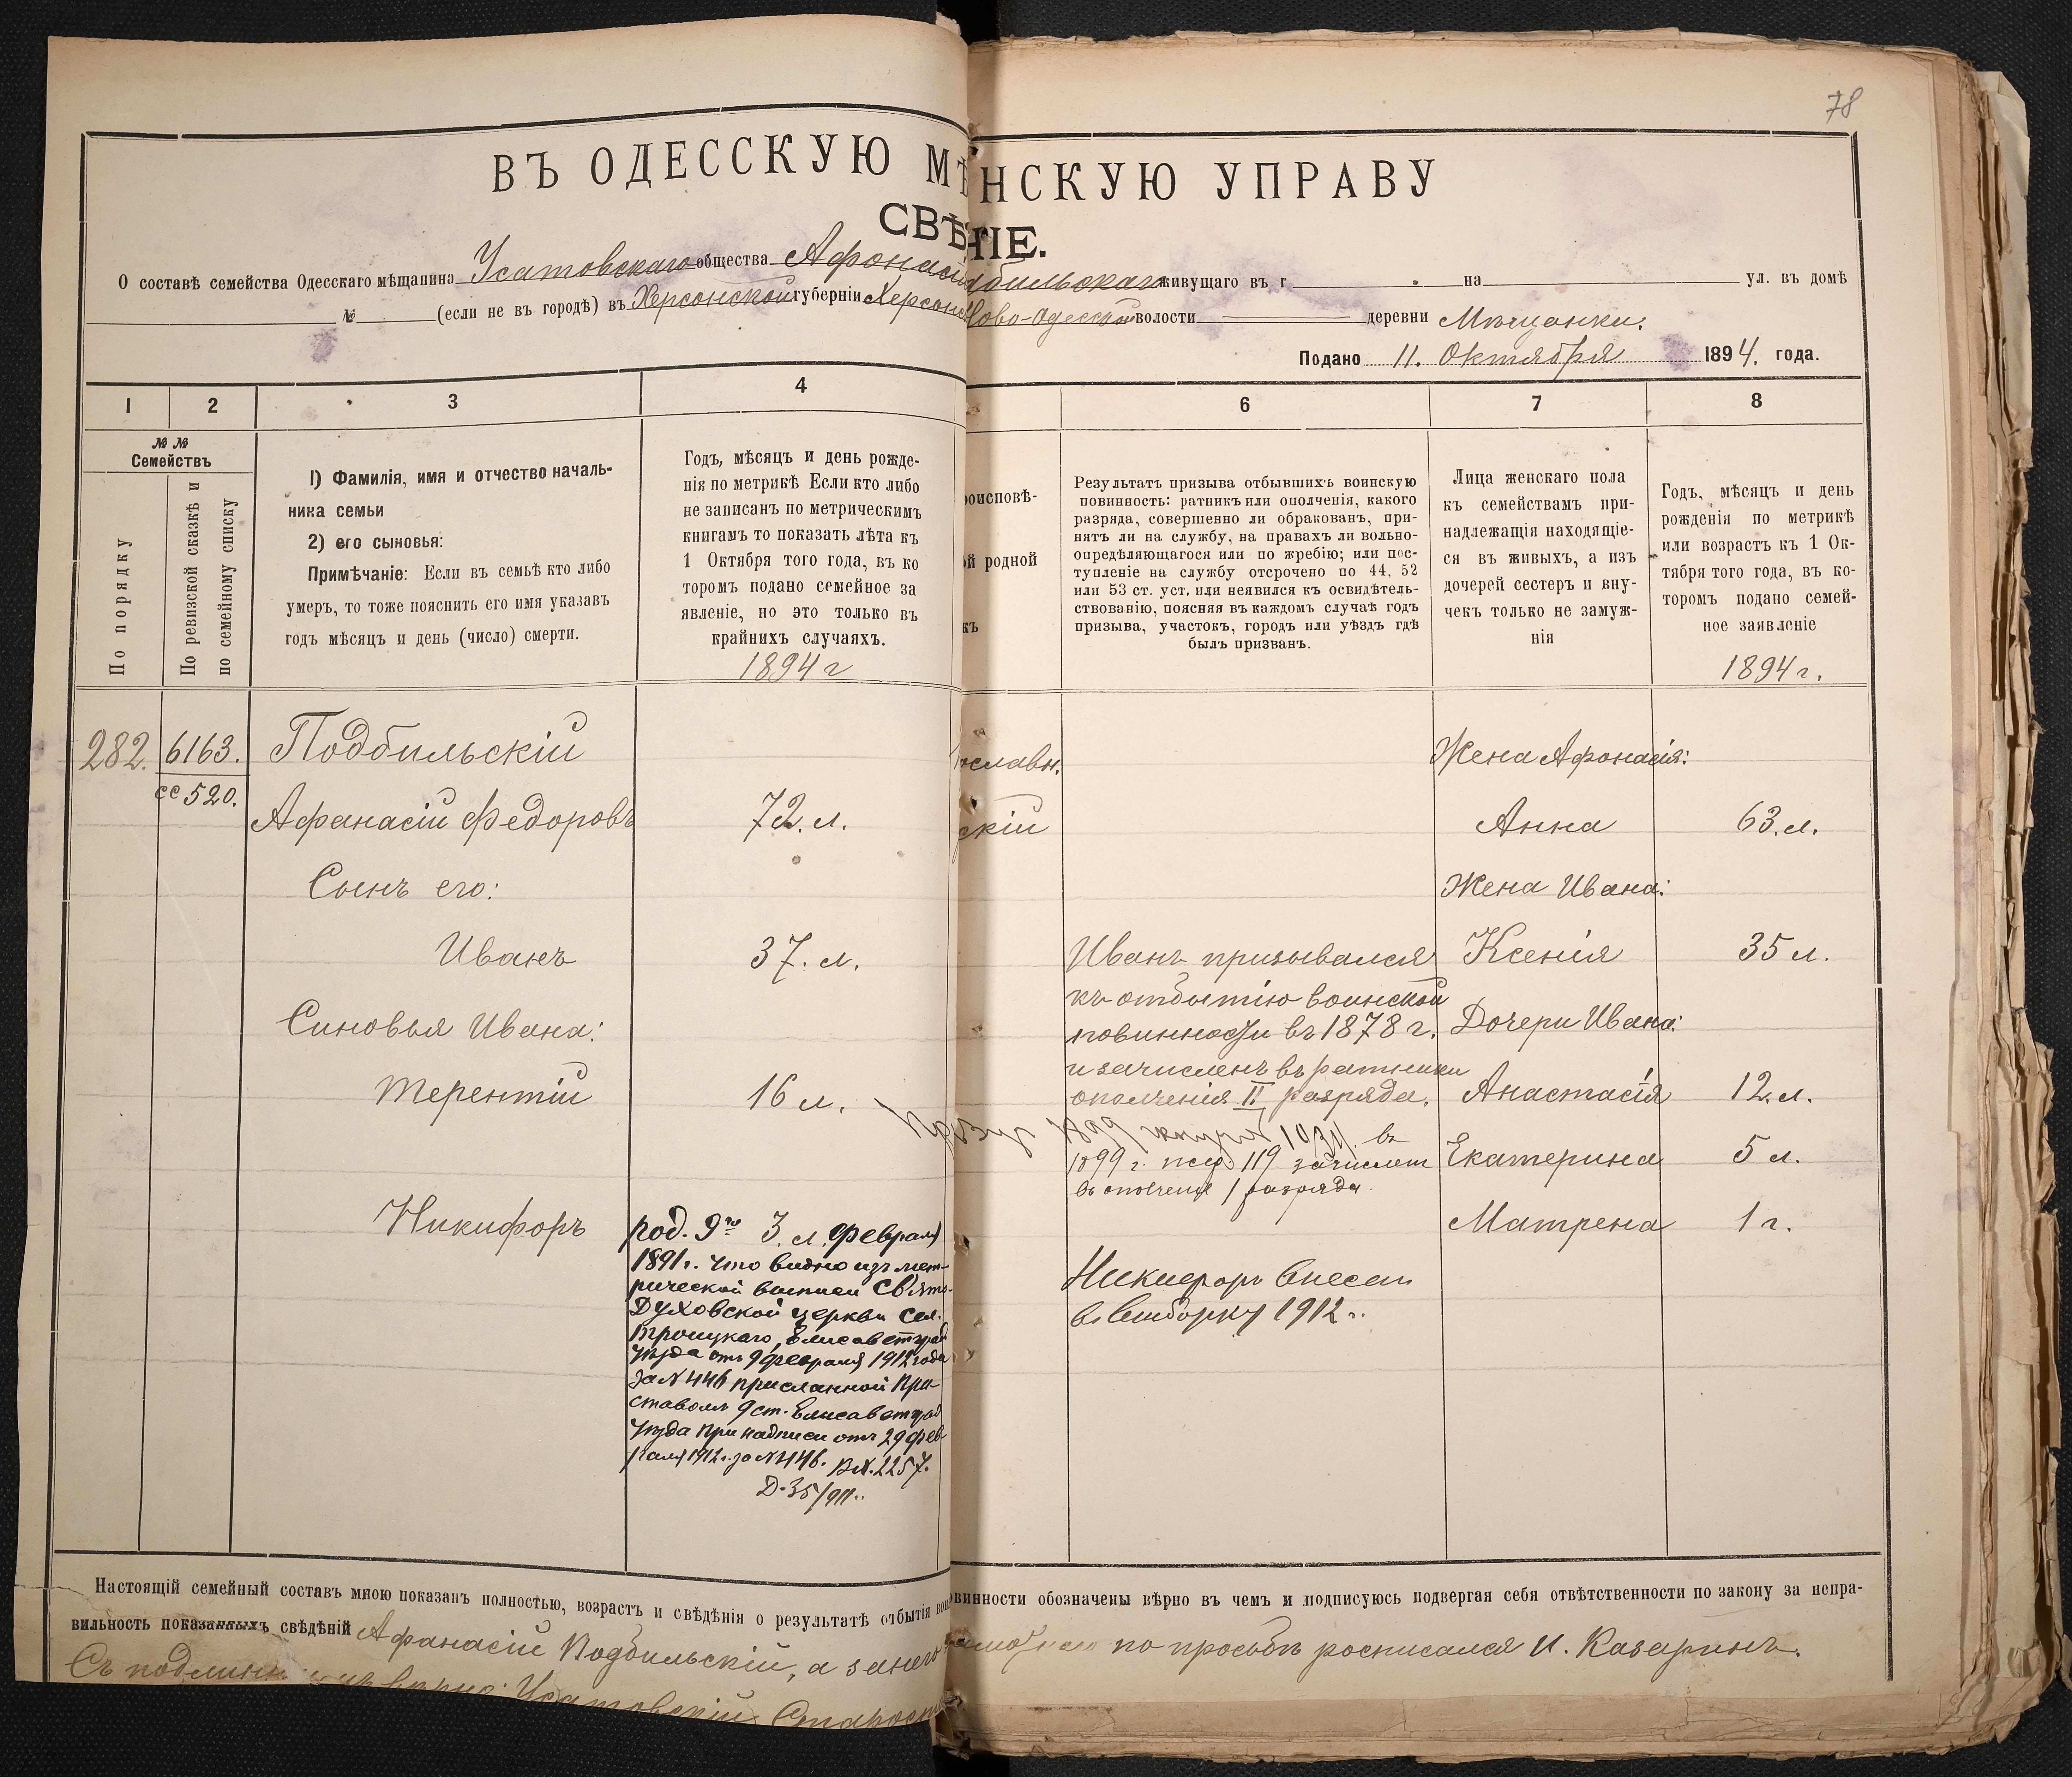 78
ВЪ ОДЕССКУЮ МѢ НСКУЮ УПРАВУ
СВѢ НІЕ.
О составѣ семейства Одесскаго мѣщанина Усатовскаго общества Афонасі дбильскаго живущаго въ г. на ул. въ домѣ
№ (если не въ городѣ) въ Херсонской губерніи Херсон Ново-Одесской волости деревни Мѣщанки.
Подано 11. Октября 1894. года.
1 2 3 4 6 7 8
№ №
Семействъ
По порядку
По ревизской сказкѣ и
по семейному списку
1) Фамилія, имя и отчество началь-
ника семьи
2) его сыновья:
Примѣчаніе: Если въ семьѣ кто либо
умеръ, то тоже пояснить его имя указавъ
годъ мѣсяцъ и день (число) смерти.
Годъ, мѣсяцъ и день рожде-
нія по метрикѣ Если кто либо
не записанъ по метрическимъ
книгамъ то показать лѣта къ
1 Октября того года, въ ко
торомъ подано семейное за
явленіе, но это только въ
крайнихъ случаяхъ.
1894 г
роисповѣ-
ой родной
къ
Результатъ призыва отбывшихъ воинскую
повинность: ратникъ или ополченія, какого
разряда, совершенно ли обракованъ, при-
нятъ ли на службу, на правахъ ли вольно-
опредѣляющагося или по жребію; или пос-
тупленіе на службу отсрочено по 44, 52
или 53 ст. уст. или неявился къ освидѣтель-
ствованію, поясняя въ каждомъ случаѣ годъ
призыва, участокъ, городъ или уѣздъ гдѣ
былъ призванъ.
Лица женскаго пола
къ семействамъ при-
надлежащія находящіе-
ся въ живыхъ, а изъ
дочерей сестеръ и вну-
чекъ только не замуж-
нія
Годъ, мѣсяцъ и день
рожденія по метрикѣ
или возрастъ къ 1 Ок-
тября того года, въ ко-
торомъ подано семей-
ное заявленіе
1894 г.
282. 6163. Подбильскій
ославн.
Жена Афонасія:
сс 520.
Афанасій Федоровъ 72. л. скій Анна 63. л.
Сынъ его: Жена Ивана:
Иванъ 37. л. Иванъ призывался Ксенія 35 л.
къ отбытію воинской
Синовья Ивана: повинности въ 1878 г. Дочери Ивана:
и зачисленъ въ ратники
Терентій 16 л. ополченія II разряда. Анастасія 12. л.
1899 1034. въ
1899 г. 119 зачислен Екатерина 5 л.
въ ополчение 1 разряда.
Никифоръ род. 9го 3. л. февраля Матрена 1 г.
1891 г. что видно изъ мет-
рической выписи Свято-
Духовской церкви сел.
Троицкаго, Елисаветград
уѣзда отъ 9 февраля 1912 года
за № 446 присланной При-
ставомъ 9 ст. Елисаветград
уѣзда при надписи отъ 29 фев-
раля 1912 г. за № 446. Вх. 2257.
Д. 35/911.
Никифоръ внесен
в выборку 1912 г.
Настоящій семейный составъ мною показанъ полностью, возрастъ и свѣдѣнія о результатѣ отбытія вои овинности обозначены вѣрно въ чемъ и подписуюсь подвергая себя отвѣтственности по закону за непра-
вильность показанныхъ свѣдѣній Афанасій Подбильскій, а за него по просьбѣ росписался И. Казаринъ.
Съ подлинн вѣрно: Усатовскій Старост